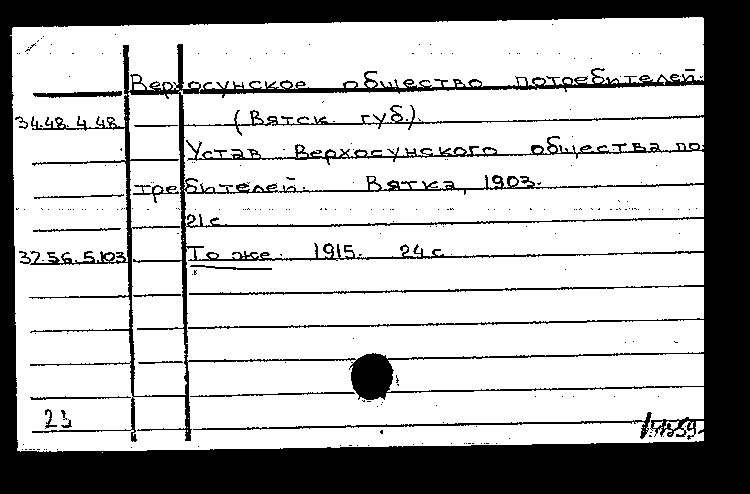 Верхосунское общество потребителей.
34.48.4.48 (Вятск. губ.).
Устав Верхосунского общества по-
требителей. Вятка, 1903.
21 с.
37.56.5.103 То же. 1915. 24 с.